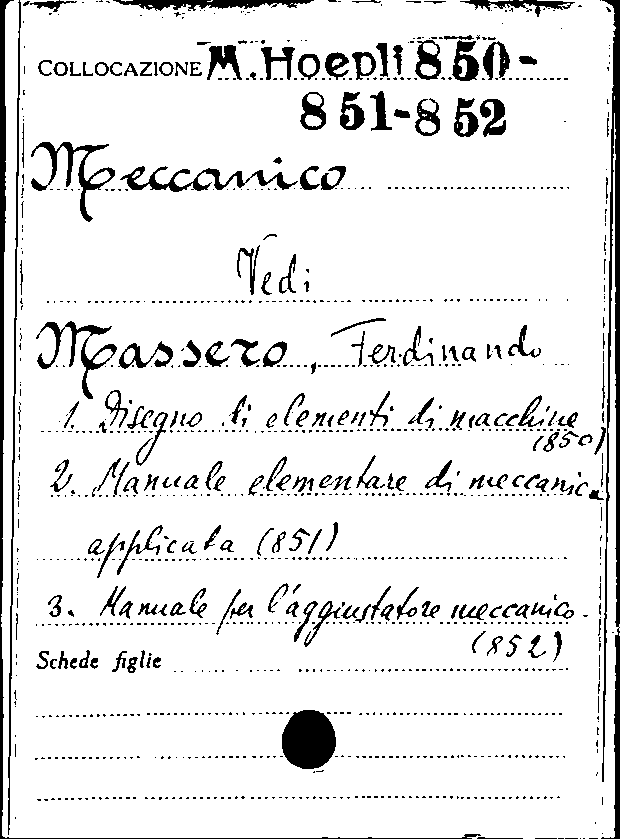 COLLOCAZIONE M. Hoepli 850-
851-852
Meccanico
Vedi
Massero, Ferdinando
1. Disegno di elementi di macchine
(850)
2. Manuale elementare di meccanica
applicata (851)
3. Manuale per l'aggiustatore meccanico.
(852)
Schede figlie